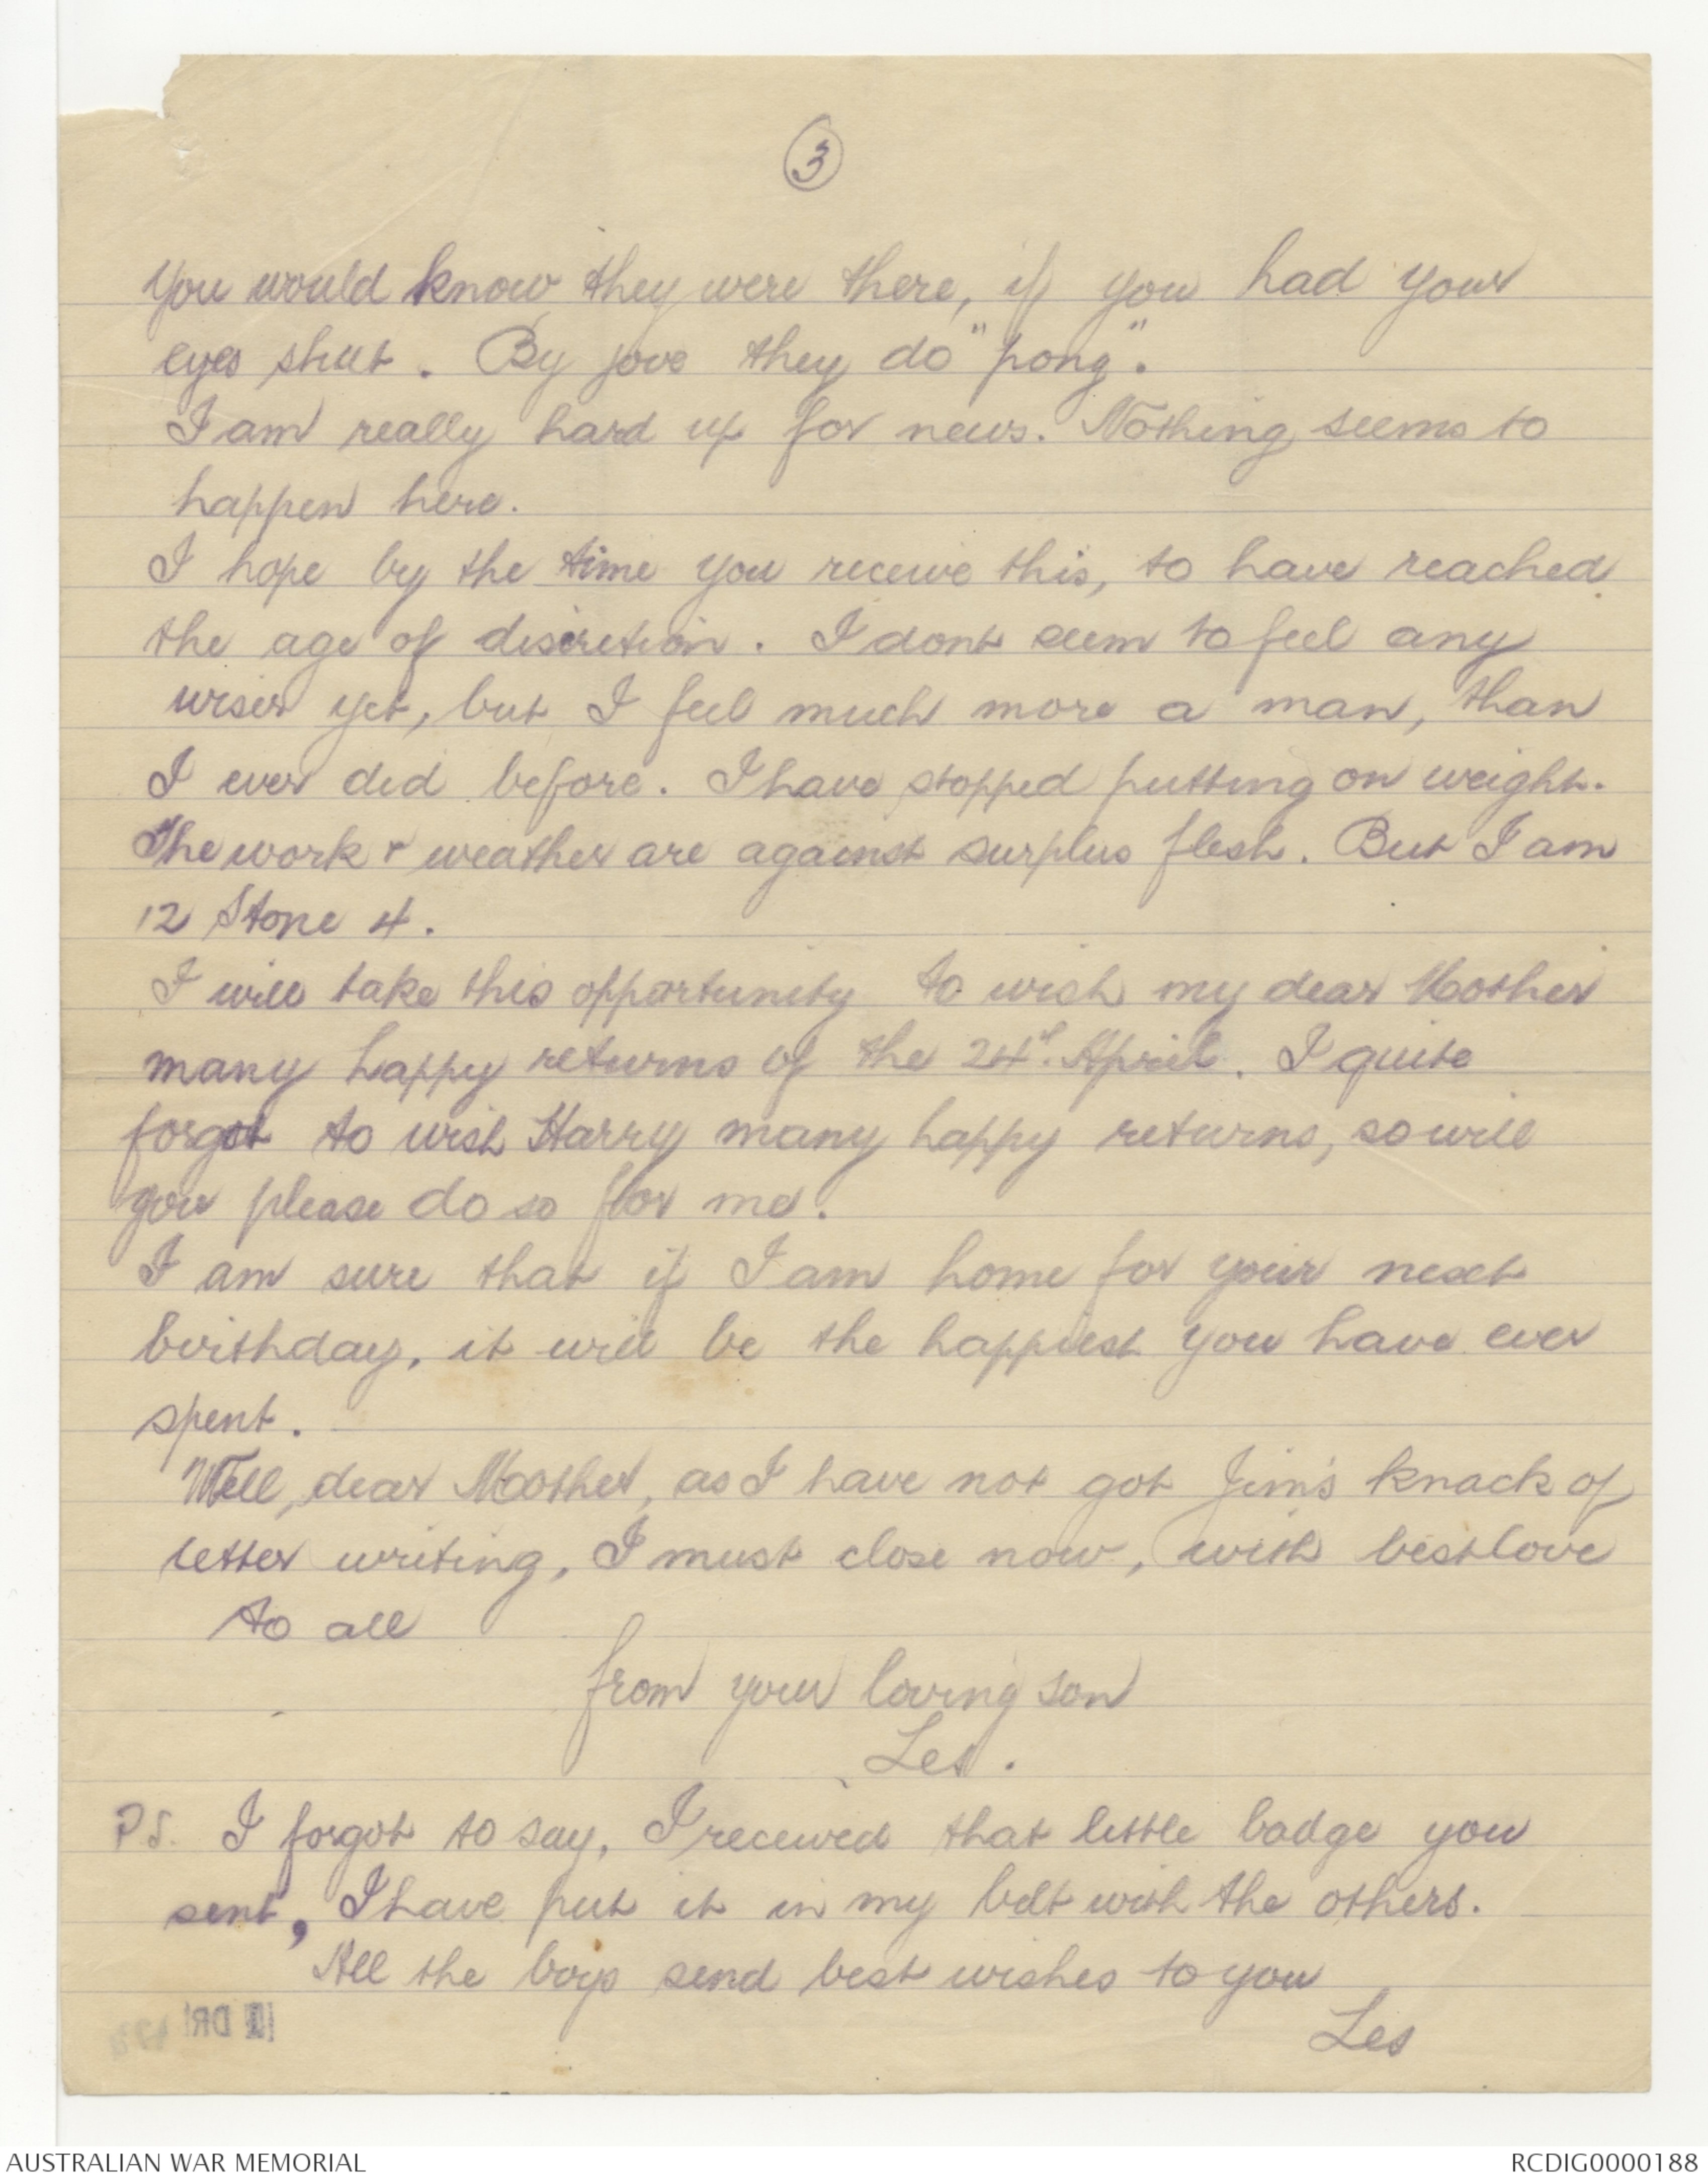 3
You would know they were there, if you had your
eyes shut. By jove they do "pong".
I am really hard up for news. Nothing seems to
happen here.
I hope by the time you receive this, to have reached
the age of discretion. I dont seem to feel any
wiser yet, but I feel much more a man, than
I ever did before. I have stopped putting on weight.
The work & weather are against surplus flesh. But I am
12 Stone 4.
I will take this opportunity to wish my dear Mother
many happy returns of the 24th. April. I quite
forgot to wish Harry many happy returns, so will
you please do so for me.
I am sure that if I am home for your next
birthday, it will be the happiest you have ever
spent.
Well, dear Mother, as I have not got Jim's knack of
letter writing, I must close now, with best love
to all
from your loving son
Les.
P.S. I forgot to say, I received that little badge you
sent, I have put it in my belt with the others.
All the boys send best wishes to you
Les
DRL
AUSTRALIAN WAR MEMORIAL
RCDIG0000188